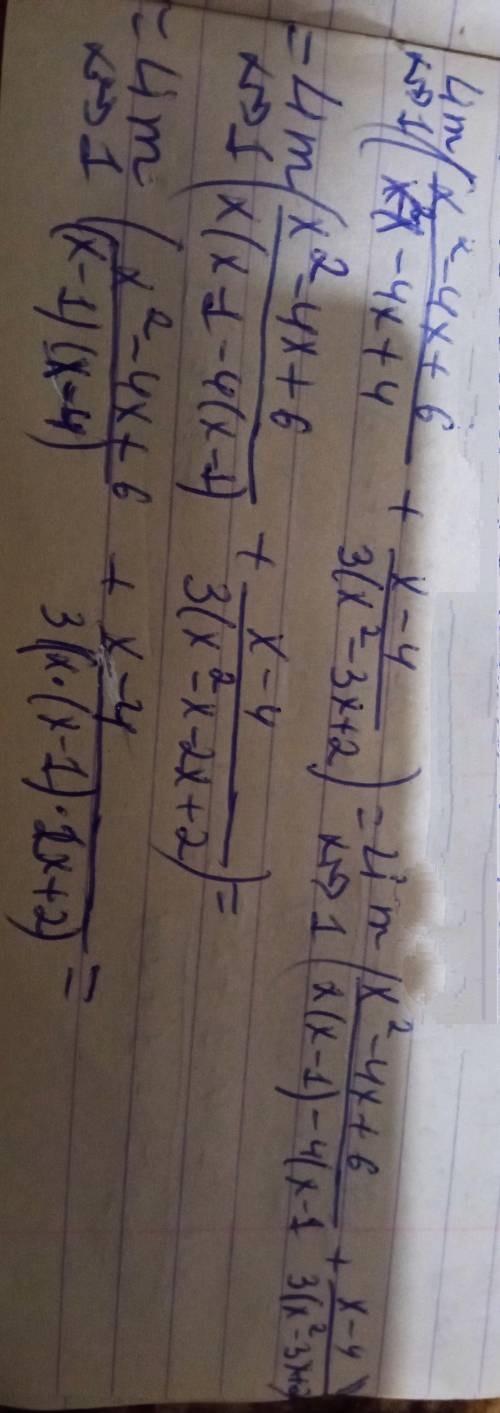 lim x→1 (x²-4x+6 / x²-x-4x+4 + x-4 / 3(x²-3x+2)) = lim x→1 (x²-4x+6 / x(x-1)-4(x-1 + x-4 / 3(x²-3x+2)
= lim x→1 (x²-4x+6 / x(x-1-4(x-1) + x-4 / 3(x²-x-2x+2)) =
= lim x→1 (x²-4x+6 / (x-1)(x-4) + x-4 / 3(x·(x-1)·2x+2) =